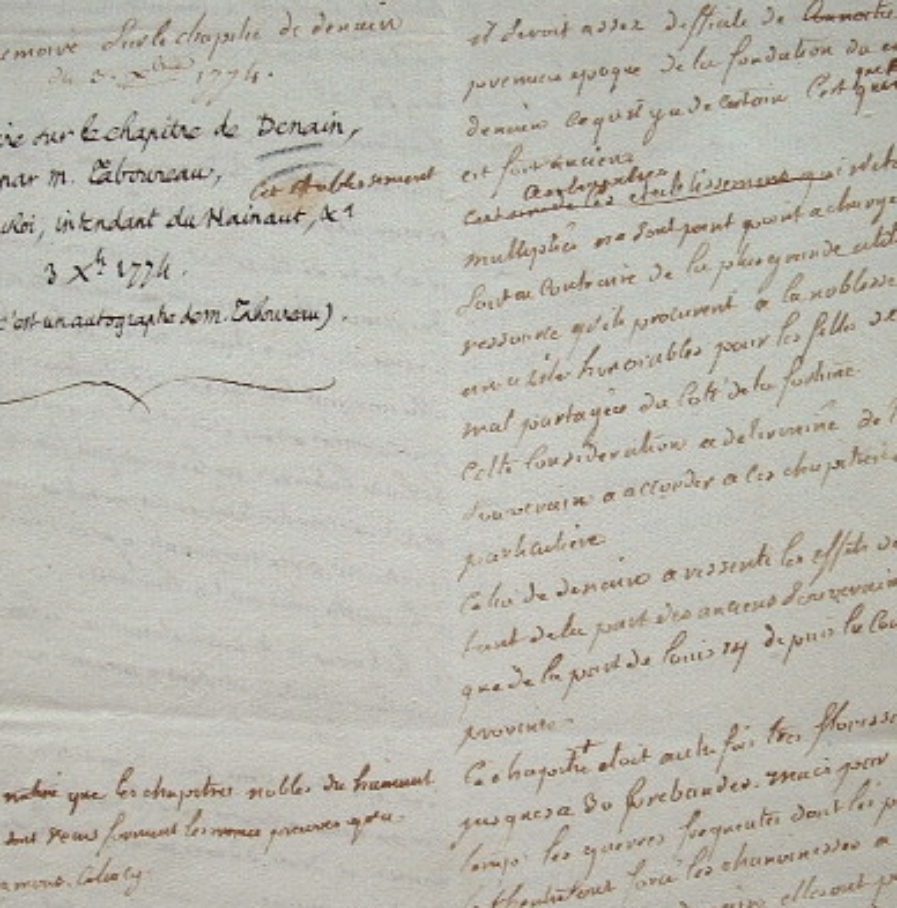 emoire Sur le chapitre de denain
du 3. Xbre 1774.
ire sur le chapitre de Denain,
par m. Taboureau,
Roi, intendant du Hainaut, &a
3 Xb. 1774.
c'est un autographe de m. Taboureau).
cet etablissement
que les chapitres nobles du hainaut
preuves
il seroit assez difficile de
premiere epoque de la fondation du
denain ce qu'il y a de certain C'est que
est fort ancien
ces etablissements qui
multipliés ne sont point a charge
sont au Contraire de la plus grande utilité
ressource qu'ils procurent a la noblesse
un azile honorables pour les filles de
mal partagées du Coté de la fortune
Cette Consideration a determiné
Souverains a accorder a ces chapitres
particuliere
Celui de denain a ressenti les effets de
tant de la part des anciens Souverains
que de la part de louis 14 depuis la
province
Ce chapitre etoit autrefois tres florissant
jusques a prebandes. mais par
les guerres frequentes dont les
forcé les chanoinesses a
elles ont